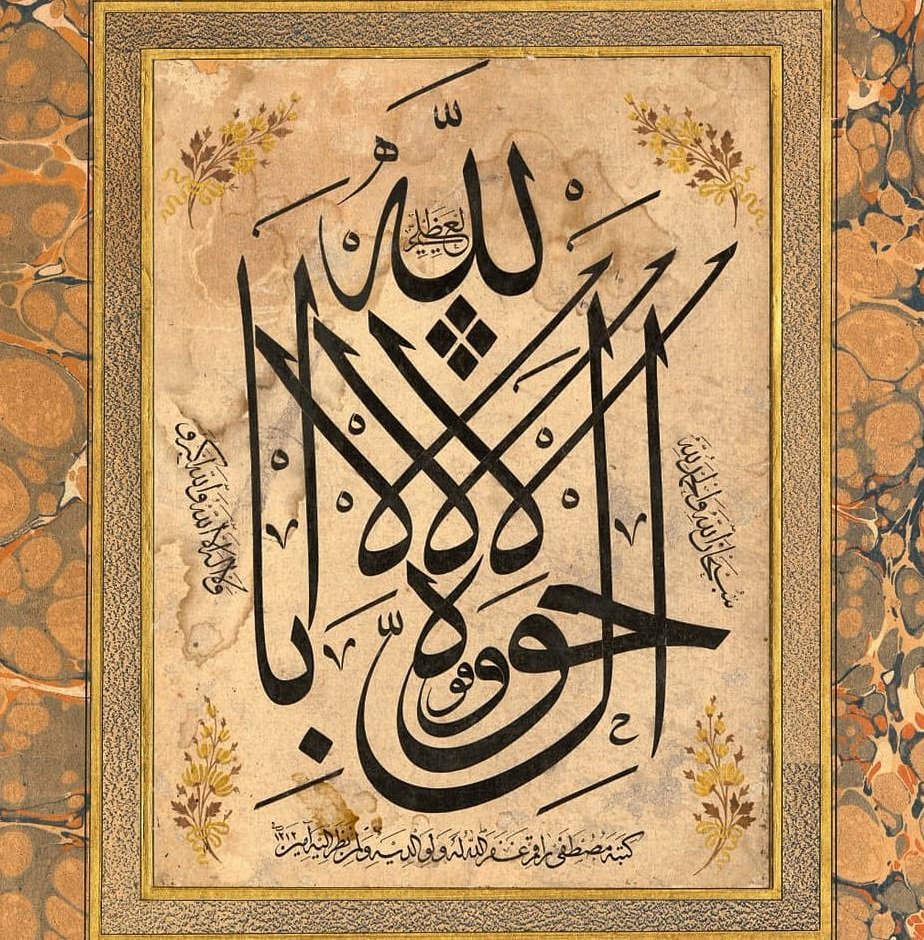 لا حول ولا قوة الا بالله العلي العظيم
سبحان الله والحمد لله
ولا اله الا الله والله اكبر
كتبه مصطفى راقم غفر الله له ولوالديه ولمن نظر اليه آمين ١٢١٢